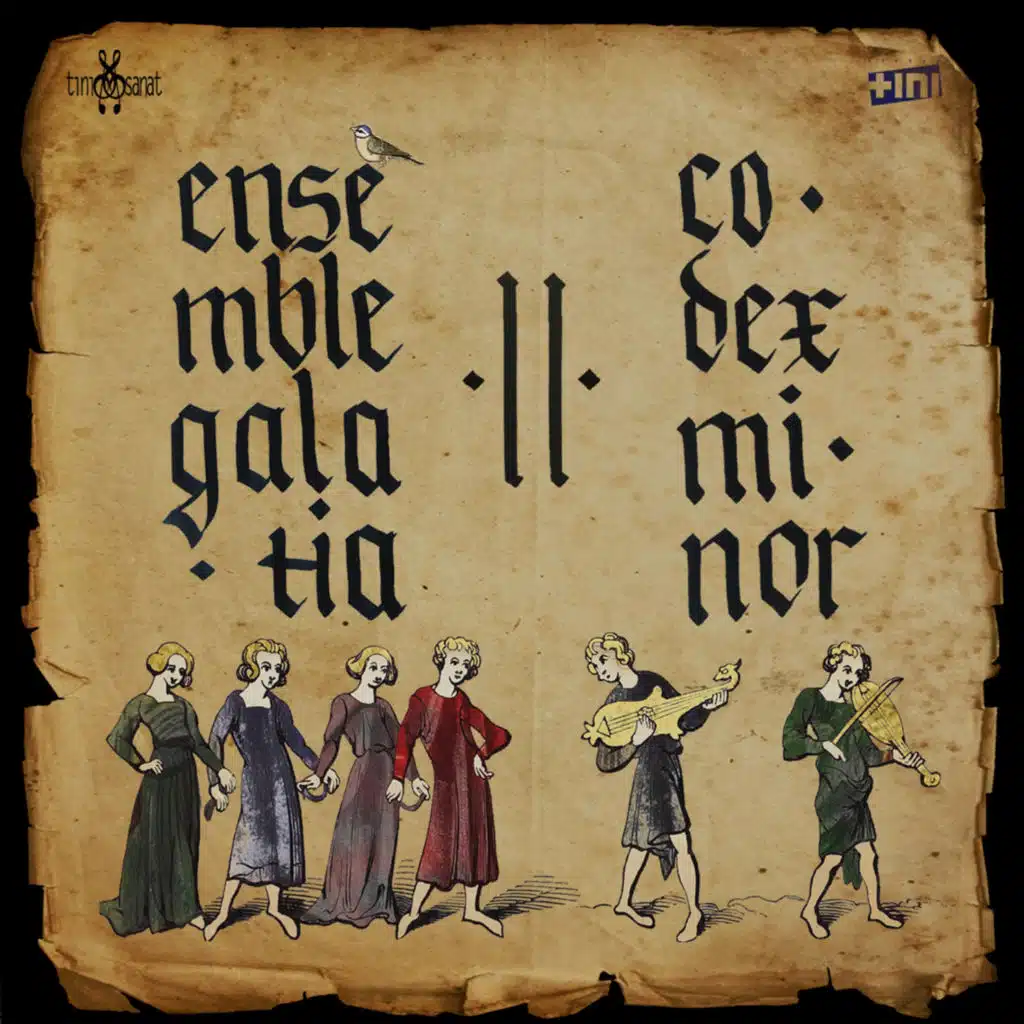 tini sanat
tini
ense
mble
gala
tia
·II·
co·
dex
mi·
nor